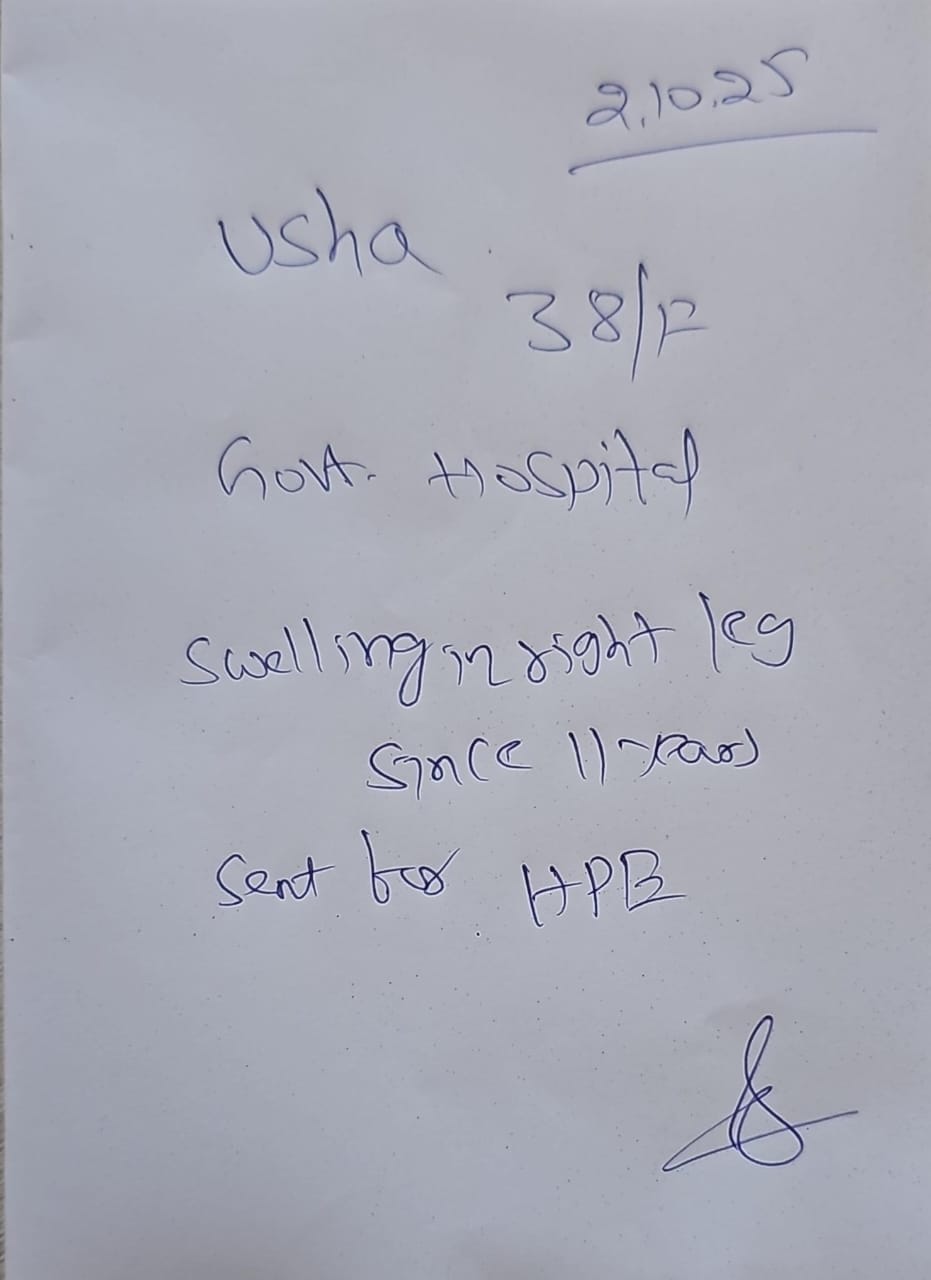 2.10.25
Usha
38/F
Govt. Hospital
Swelling in right leg
since 11 years
Sent for HPE